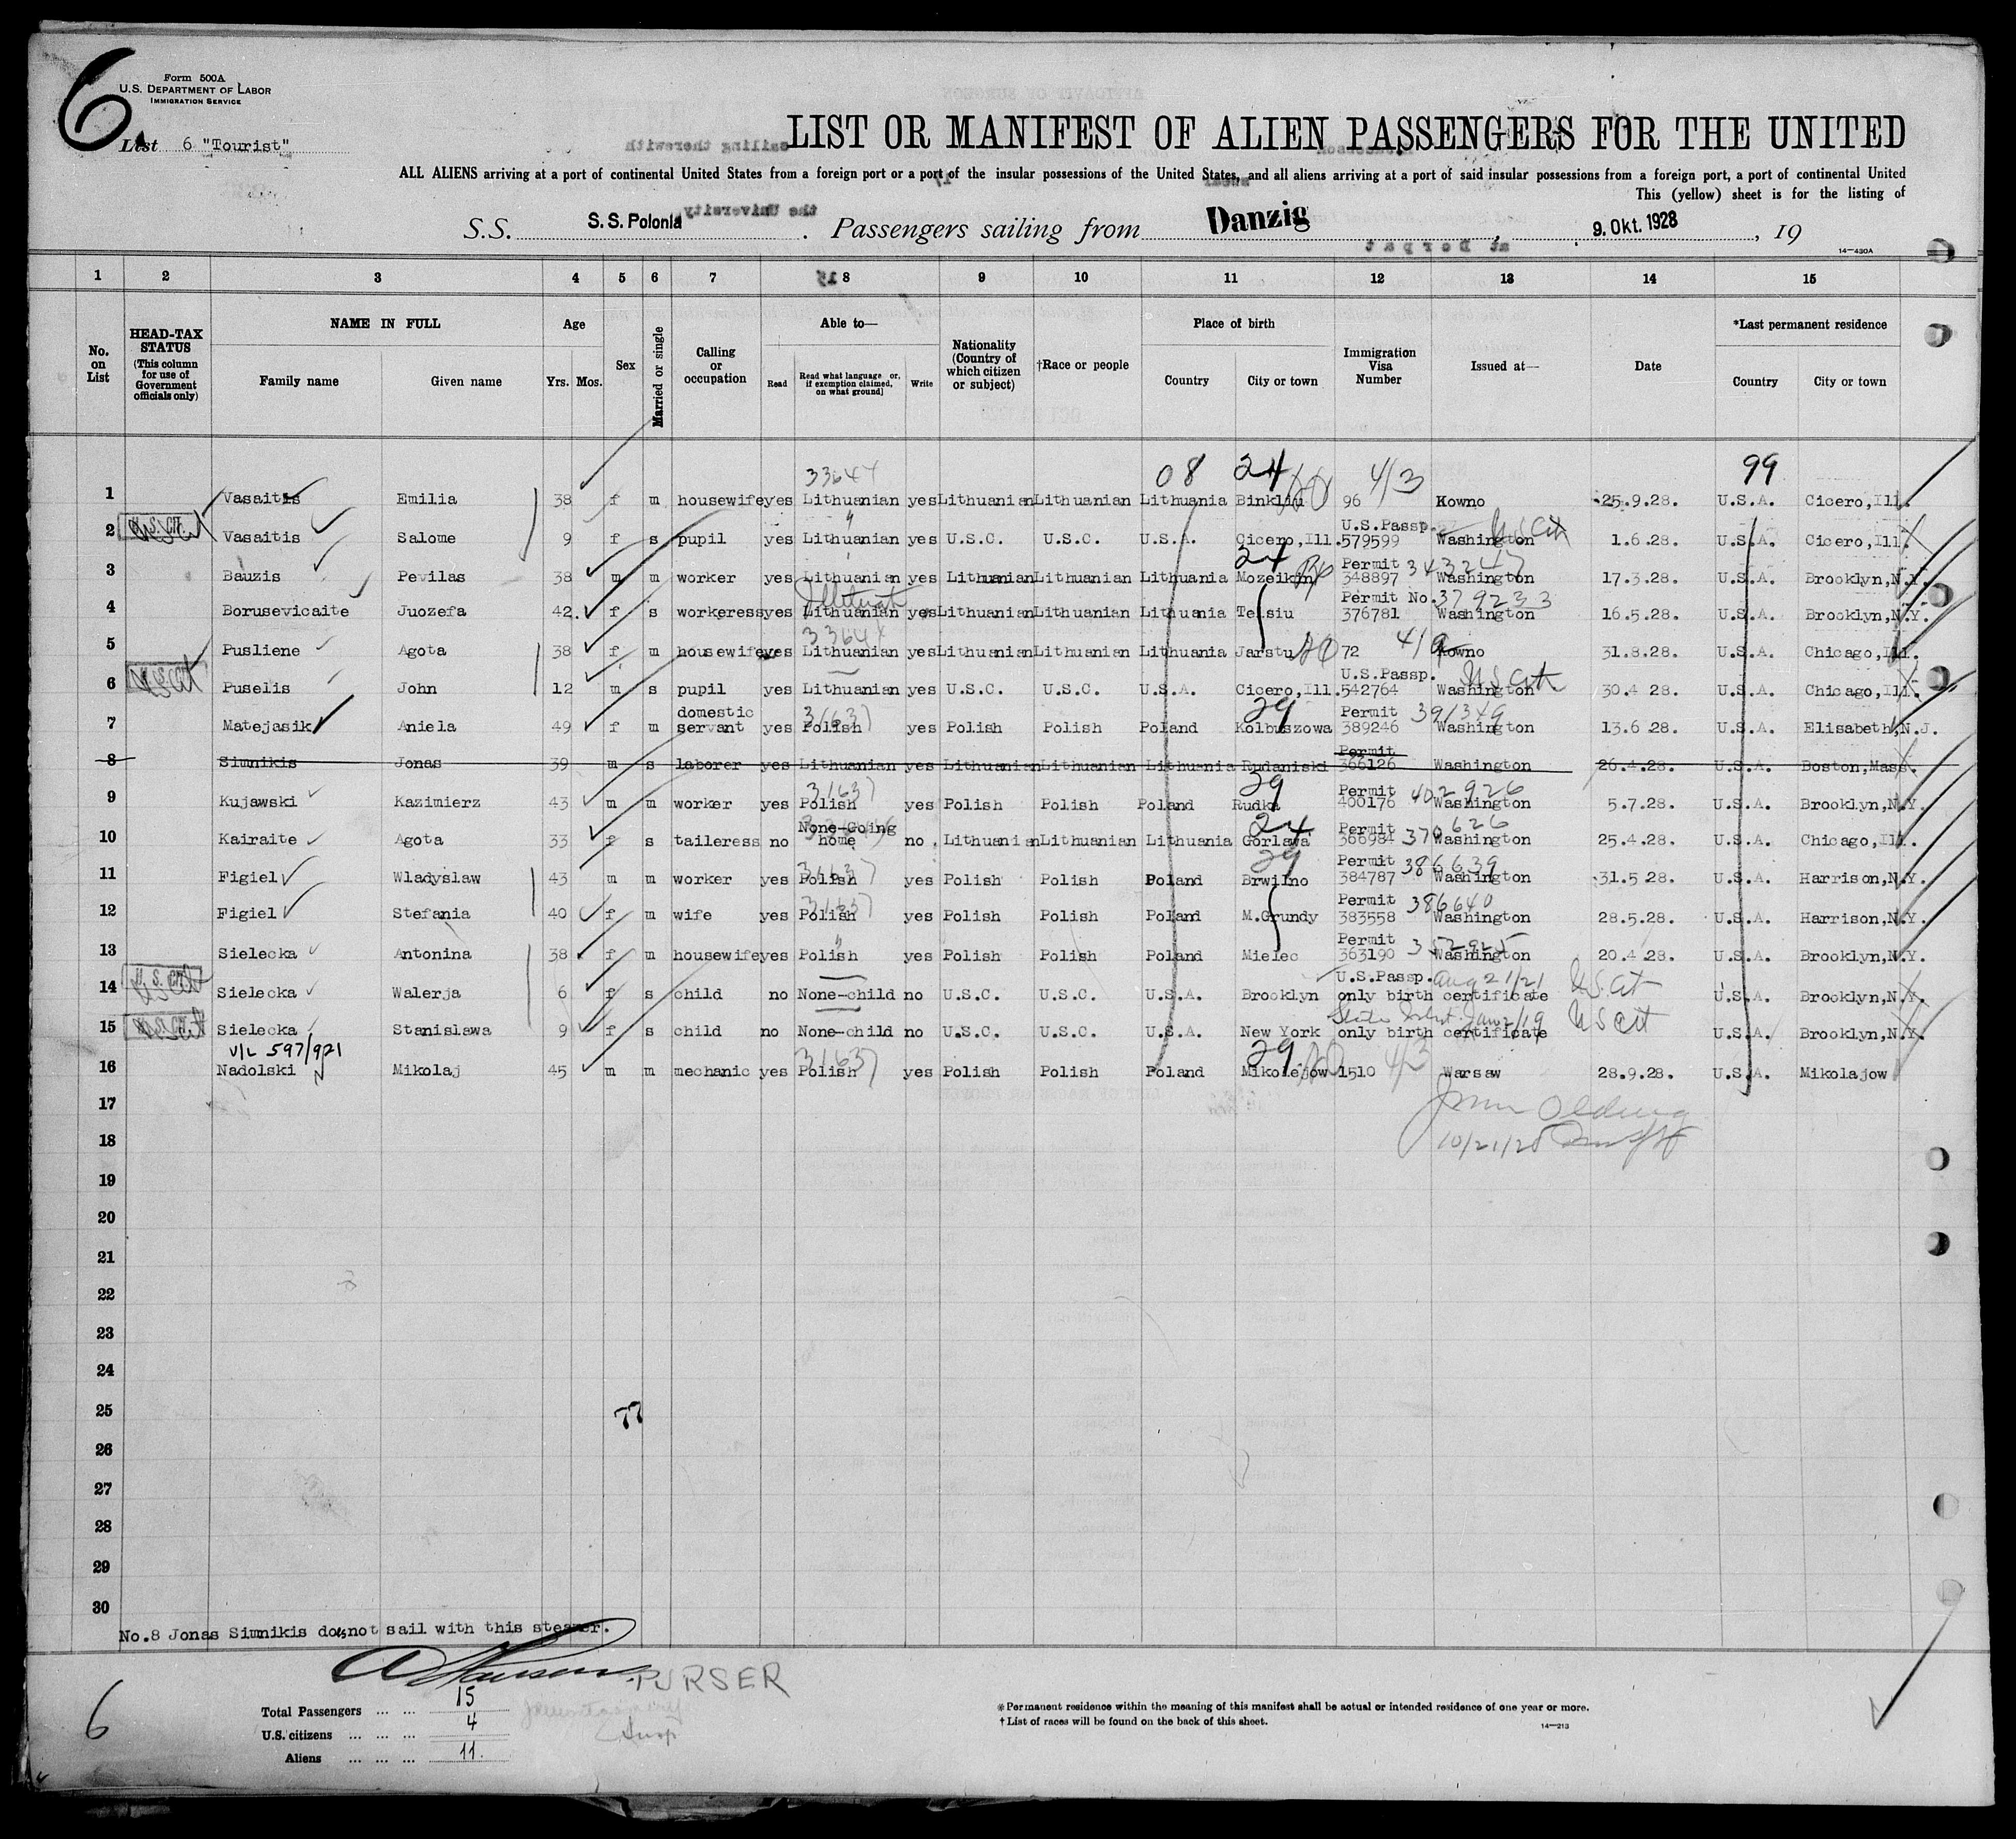 6
Form 500A
U.S. DEPARTMENT OF LABOR
IMMIGRATION SERVICE
List 6 "Tourist"
LIST OR MANIFEST OF ALIEN PASSENGERS FOR THE UNITED
ALL ALIENS arriving at a port of continental United States from a foreign port or a port of the insular possessions of the United States, and all aliens arriving at a port of said insular possessions from a foreign port, a port of continental United
This (yellow) sheet is for the listing of
S.S. S.S. Polonia. Passengers sailing from Danzig, 9. Okt. 1928, 19
14—430A
1 2 3 4 5 6 7 8 9 10 11 12 13 14 15
No. on List
HEAD-TAX STATUS (This column for use of Government officials only)
NAME IN FULL
Family name Given name
Age
Yrs. Mos.
Sex
Married or single
Calling or occupation
Able to—
Read
Read what language [or, if exemption claimed, on what ground]
Write
Nationality (Country of which citizen or subject)
†Race or people
Place of birth
Country City or town
Immigration Visa Number
Issued at—
Date
*Last permanent residence
Country City or town
33647 08 24 4/3 99
1 Vasaitis Emilia 38 f m housewife yes Lithuanian yes Lithuanian Lithuanian Lithuania Binkliu 96 Kowno 25.9.28. U.S.A. Cicero,Ill.
U.S.Passp. US Cit
2 Vasaitis Salome 9 f s pupil yes Lithuanian yes U.S.C. U.S.C. U.S.A. Cicero,Ill. 579599 Washington 1.6.28. U.S.A. Cicero,Ill.
24 Permit 343247
3 Bauzis Pevilas 38 m m worker yes Lithuanian yes Lithuanian Lithuanian Lithuania Mozeikin 348897 Washington 17.3.28. U.S.A. Brooklyn,N.Y.
Permit No. 379233
4 Borusevicaite Juozefa 42. f s workeress yes Lithuanian yes Lithuanian Lithuanian Lithuania Telsiu 376781 Washington 16.5.28. U.S.A. Brooklyn,N.Y.
33647 4/9
5 Pusliene Agota 38 f m housewife yes Lithuanian yes Lithuanian Lithuanian Lithuania Jarstu 72 Kowno 31.8.28. U.S.A. Chicago,Ill.
U.S.Passp. US Cit
6 Puselis John 12 m s pupil yes Lithuanian yes U.S.C. U.S.C. U.S.A. Cicero,Ill. 542764 Washington 30.4 28. U.S.A. Chicago,Ill.
domestic 31637 29 Permit 391349
7 Matejasik Aniela 49 f m servant yes Polish yes Polish Polish Poland Kolbuszowa 389246 Washington 13.6.28. U.S.A. Elisabeth,N.J.
Permit
8 Simnikis Jonas 39 m s laborer yes Lithuanian yes Lithuanian Lithuanian Lithuania Rudaniski 366126 Washington 26.4.28. U.S.A. Boston,Mass.
31637 29 Permit 402926
9 Kujawski Kazimierz 43 m m worker yes Polish yes Polish Polish Poland Rudka 400176 Washington 5.7.28. U.S.A. Brooklyn,N.Y.
None-Going 24 Permit 370626
10 Kairaite Agota 33 f s taileress no home no. Lithuanian Lithuanian Lithuania Gorlawa 366984 Washington 25.4.28. U.S.A. Chicago,Ill.
31637 29 Permit 386639
11 Figiel Wladyslaw 43 m m worker yes Polish yes Polish Polish Poland Brwilno 384787 Washington 31.5 28. U.S.A. Harrison,N.Y.
31637 Permit 386640
12 Figiel Stefania 40 f m wife yes Polish yes Polish Polish Poland M.Grundy 383558 Washington 28.5.28. U.S.A. Harrison,N.Y.
Permit 352925
13 Sielecka Antonina 38. f m housewife yes Polish yes Polish Polish Poland Mielec 363190 Washington 20.4.28. U.S.A. Brooklyn,N.Y.
U.S.Passp. Aug 21/21 US Cit
14 Sielecka Walerja 6 f s child no None-child no U.S.C. U.S.C. U.S.A. Brooklyn only birth certificate U.S.A. Brooklyn,N.Y.
Jan 2/19 US Cit
15 Sielecka Stanislawa 9 f s child no None-child no U.S.C. U.S.C. U.S.A. New York only birth certificate U.S.A. Brooklyn,N.Y.
V/L 597/921 31637 29 4/3
16 Nadolski Mikolaj 45 m m mechanic yes Polish yes Polish Polish Poland Mikolejow 1510 Warsaw 28.9.28. U.S.A. Mikolajow
17
18 10/21/28
19
20
21
22
23
24
25
77
26
27
28
29
30
No.8 Jonas Simnikis does not sail with this steamer.
PURSER
6
Total Passengers ... ... 15
U.S. citizens ... ... ... 4
Aliens ... ... ... 11.
*Permanent residence within the meaning of this manifest shall be actual or intended residence of one year or more.
†List of races will be found on the back of this sheet.
14—213